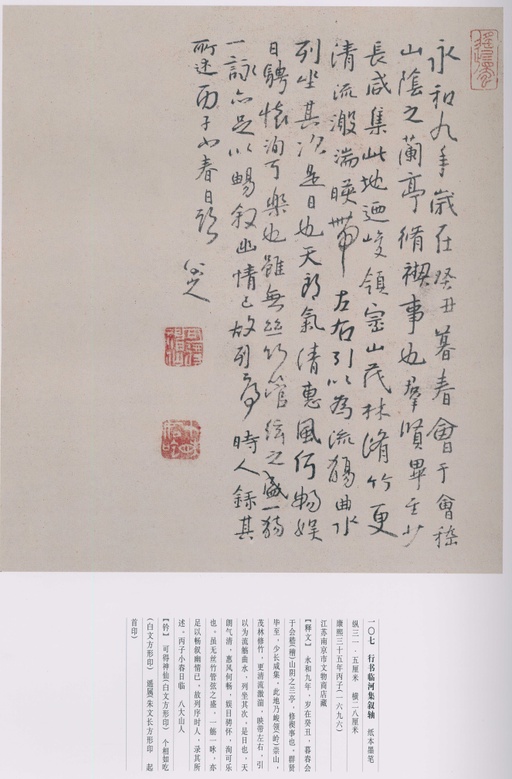 永和九年歲在癸丑暮春會于會稽
山陰之蘭亭脩禊事也羣賢畢至少
長咸集此地迺峻領崇山茂林脩竹更
清流激湍暎帶左右引以為流觴曲水
列坐其次是日也天朗氣清惠風何暢娱
目騁懷洵可樂也雖無絲竹管絃之盛一觴
一詠亦足以暢叙幽情已故列序時人録其
所述丙子小春日臨
八大山人
可得神仙
个相如吃
一〇七　行书临河集叙轴　纸本墨笔
纵三一·五厘米　横二八厘米
康熙三十五年丙子(一六九六)
江苏南京市文物商店藏
【释文】永和九年，岁在癸丑，暮春会
于会嵇(稽)山阴之兰亭，修禊事也。群贤
毕至，少长咸集。此地乃峻领(岭)崇山，
茂林修竹，更清流激湍，映带左右，引
以为流觞曲水，列坐其次，是日也，天
朗气清，惠风何畅，娱目骋怀，洵可乐
也。虽无丝竹管弦之盛，一觞一咏，亦
足以畅叙幽情已。故列序时人，录其所
述。丙子小春日临　八大山人
【钤】可得神仙(白文方形印)　个相如吃
(白文方形印)　遥属(朱文长方形印　起
首印)